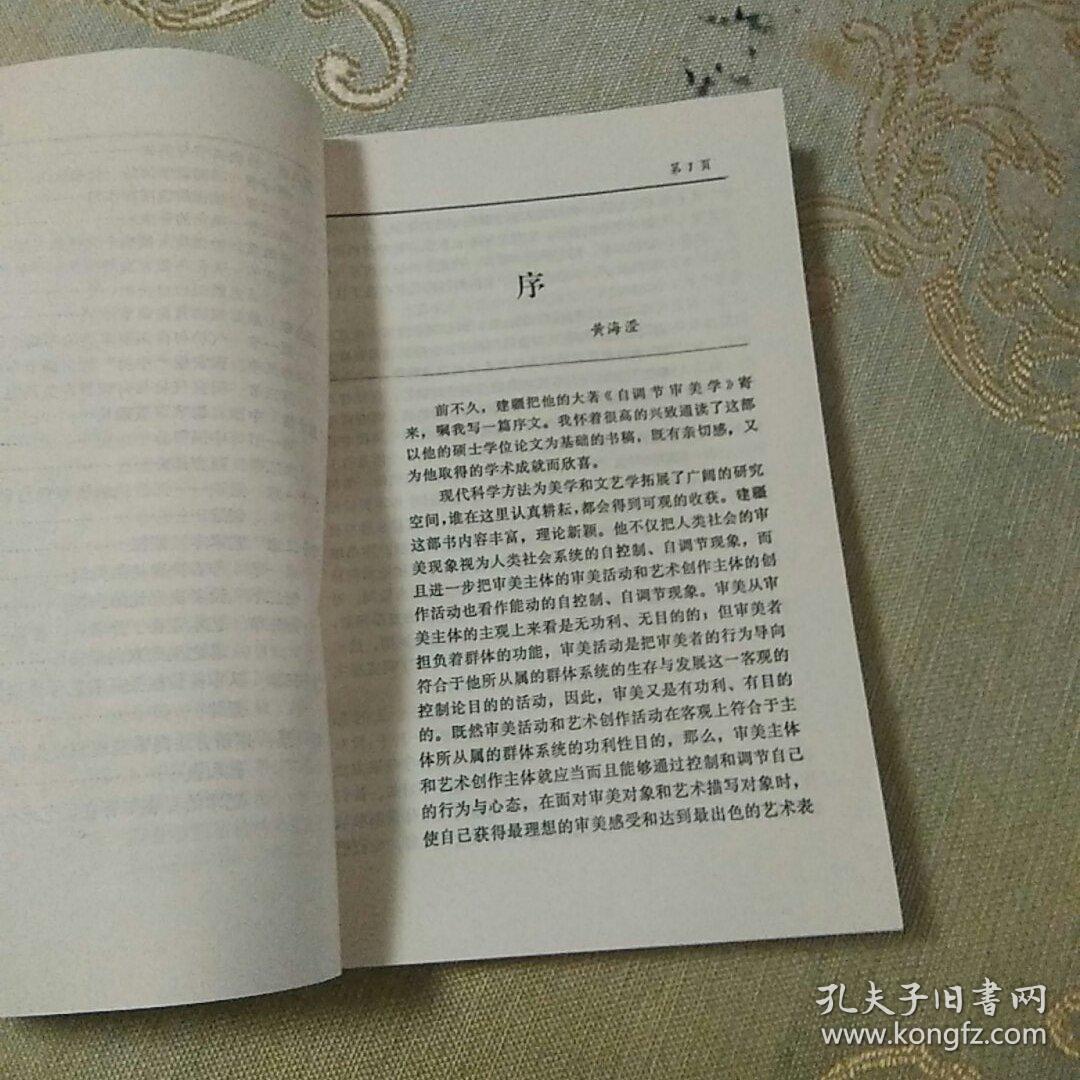 第1页
序
黄海澄
前不久，建疆把他的大著《自调节审美学》寄
来，嘱我写一篇序文。我怀着很高的兴致通读了这部
以他的硕士学位论文为基础的书稿，既有亲切感，又
为他取得的学术成就而欣喜。
现代科学方法为美学和文艺学拓展了广阔的研究
空间，谁在这里认真耕耘，都会得到可观的收获。建疆
这部书内容丰富，理论新颖。他不仅把人类社会的审
美现象视为人类社会系统的自控制、自调节现象，而
且进一步把审美主体的审美活动和艺术创作主体的创
作活动也看作能动的自控制、自调节现象。审美从审
美主体的主观上来看是无功利、无目的的；但审美者
担负着群体的功能，审美活动是把审美者的行为导向
符合于他所从属的群体系统的生存与发展这一客观的
控制论目的的活动，因此，审美又是有功利、有目的
的。既然审美活动和艺术创作活动在客观上符合于主
体所从属的群体系统的功利性目的，那么，审美主体
和艺术创作主体就应当而且能够通过控制和调节自己
的行为与心态，在面对审美对象和艺术描写对象时，
使自己获得最理想的审美感受和达到最出色的艺术表
孔夫子旧書网
www.kongfz.com